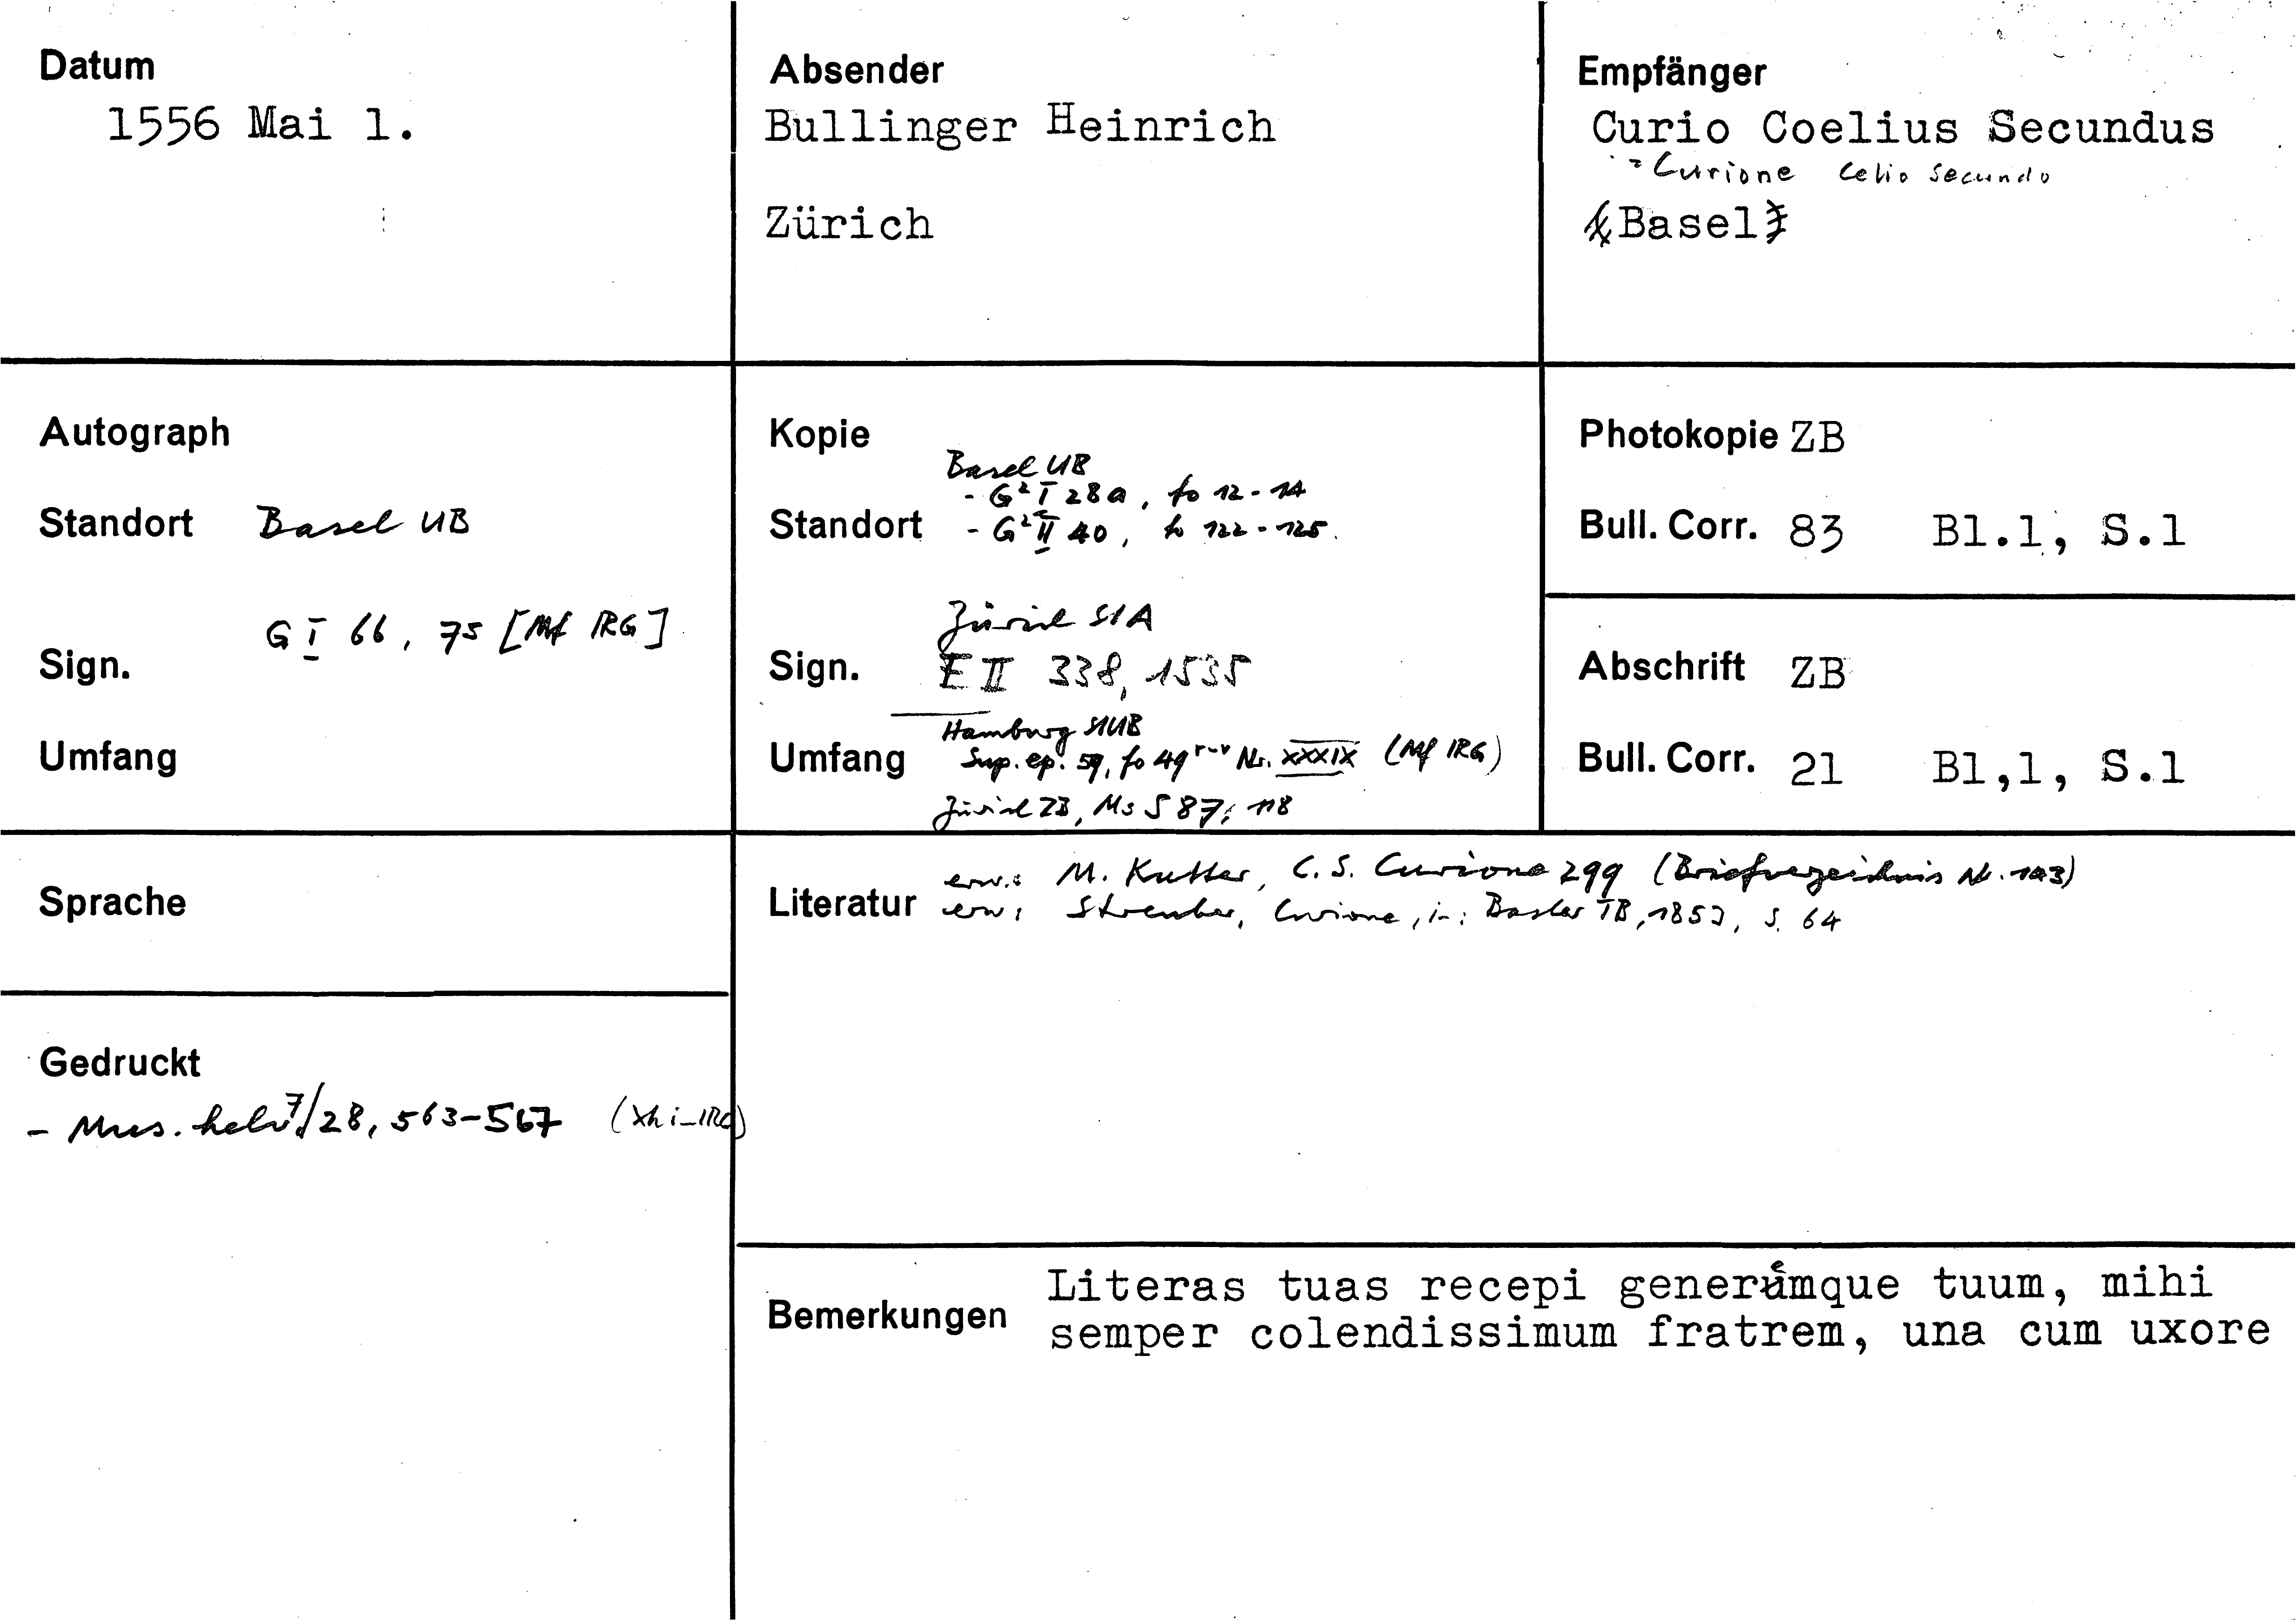 Datum
1556 Mai 1.
Absender
Bullinger Heinrich
Zürich
Empfänger
Curio Coelius Secundus
= Curione Celio Secundo
[Basel]
Autograph
Standort Basel UB
Sign. G I 66, 75 [Mf IRG]
Umfang
Kopie
Basel UB
- G² I 28a, fo 12-14
Standort - G² II 40, fo 122-125.
Zürich StA
Sign. E II 338, 1535
Hamburg SUB
Umfang Sup. ep. 59, fo 49 r-v Nr. XXXIX (Mf IRG)
Zürich ZB, Ms S 87, 118
Photokopie ZB
Bull. Corr. 83 Bl.1, S.1
Abschrift ZB
Bull. Corr. 21 Bl,1, S.1
Sprache
Literatur erw.: M. Kutter, C. S. Curione 299 (Briefverzeichnis Nr. 103)
erw: Streuber, Curione, in: Basler TB, 1853, S. 64
Gedruckt
- Mus. helv. 7/28, 563-567 (Xk i-IRG)
Bemerkungen Literas tuas recepi generémque tuum, mihi
semper colendissimum fratrem, una cum uxore